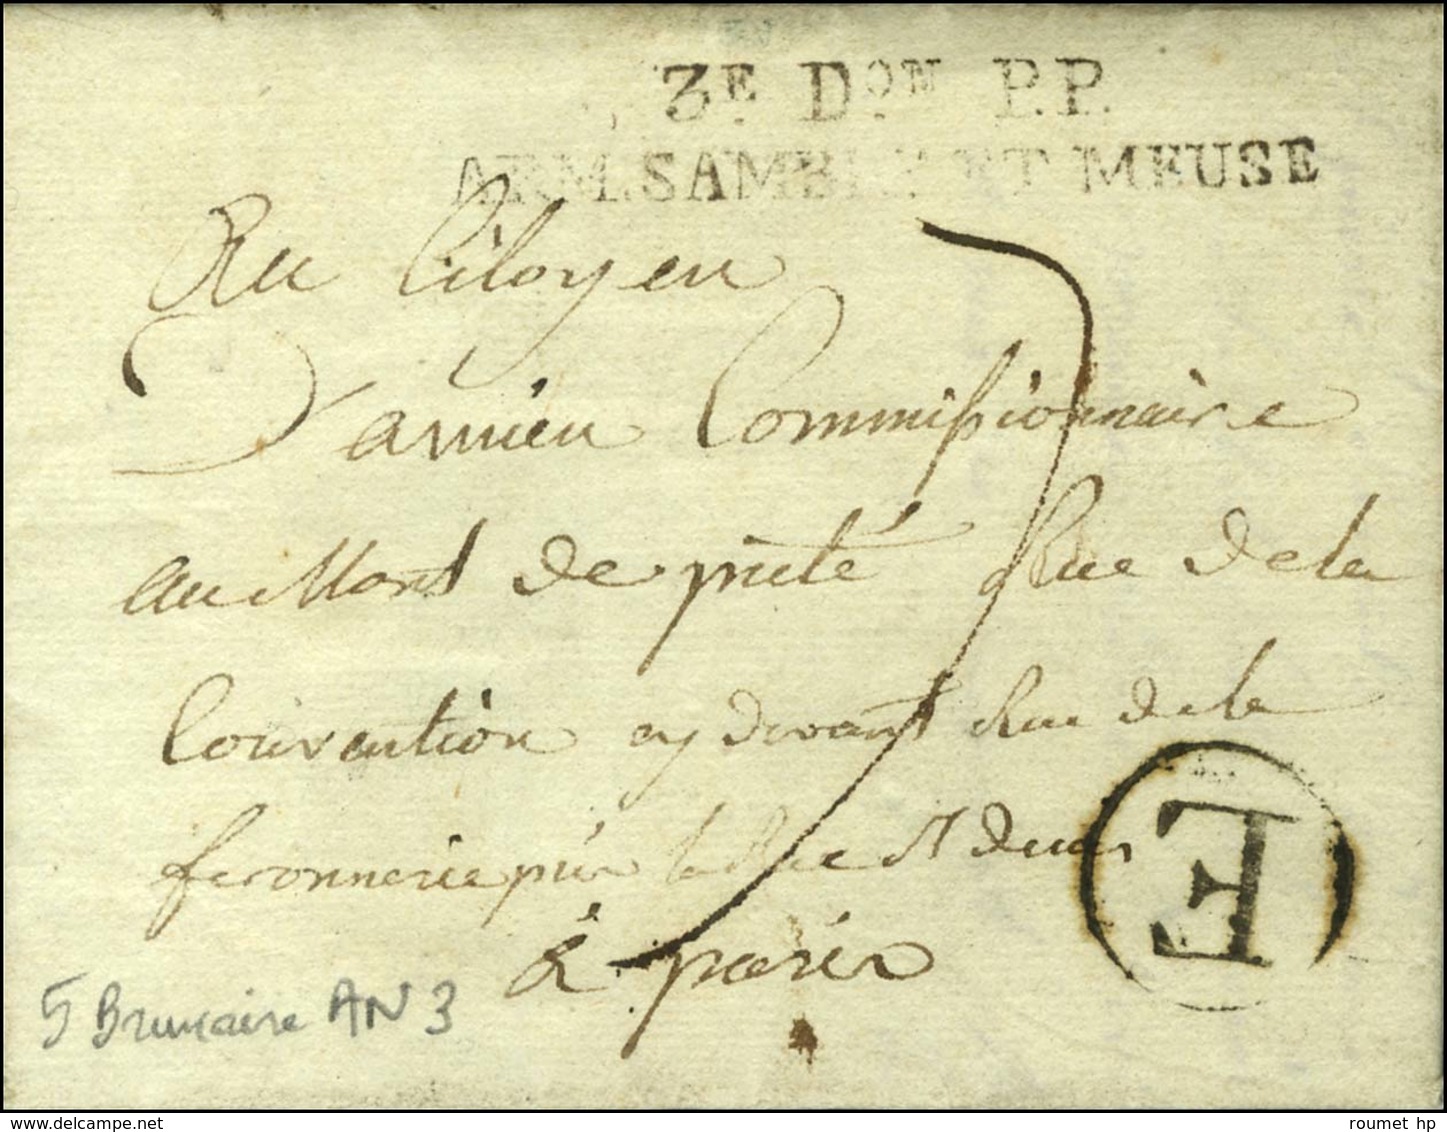 3E. DON P.P.
ARM. SAMBRE ET MEUSE
Au Citoyen
Damien Commissionnaire
au Mont de pieté Rue de la
Convention cy devant Rue de la
feronnerie près la Rue St Denis
à paris
E
5 Brumaire AN 3
roumet hp